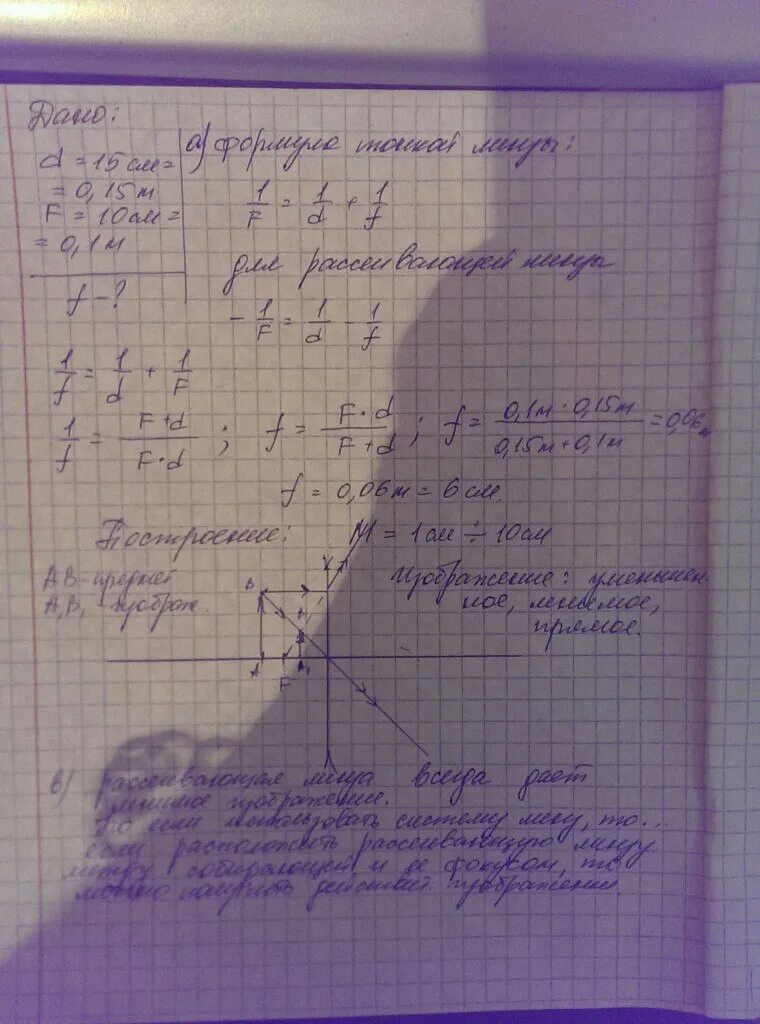 Дано:
d = 15 см =
= 0,15 м
F = 10 см =
= 0,1 м
f - ?
а) формула тонкой линзы:
1/F = 1/d + 1/f
для рассеивающей линзы
- 1/F = 1/d - 1/f
1/f = 1/d + 1/F
1/f = F+d / F·d ; f = F·d / F+d ; f = 0,1м · 0,15м / 0,15м + 0,1м = 0,06 м
f = 0,06м = 6 см.
Построение: М = 1см ÷ 10см
АВ - предмет
А₁В₁ - изображ.
Изображение: уменьшен-
ное, мнимое,
прямое.
B
A
F
A₁
в) рассеивающая линза всегда дает
мнимое изображение.
Но если использовать систему линз, то..
если расположить рассеивающую линзу
между собирающей и ее фокусом, то
можно получить действит изображение.